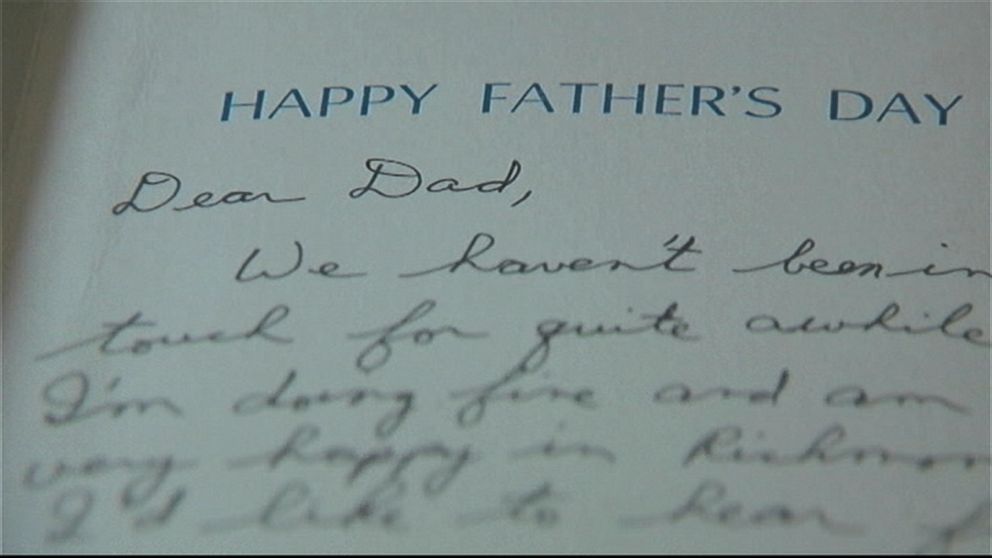 HAPPY FATHER'S DAY
Dear Dad,
We haven't been in
touch for quite awhile
I'm doing fine and am
very happy in
I'd like to hear